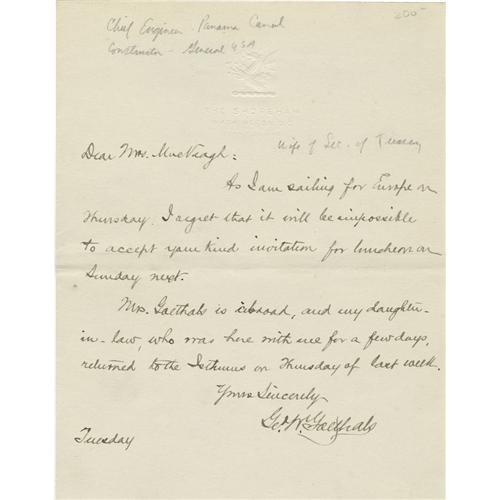 Chief Engineer Panama Canal
Constructor - General USA
200-
THE SHOREHAM
WASHINGTON
Wife of Sec. of Treasury
Dear Mrs. MacVeagh:
As I am sailing for Europe on
Thursday, I regret that it will be impossible
to accept your kind invitation for luncheon on
Sunday next.
Mrs. Goethals is abroad, and my daughter-
in-law, who was here with me for a few days,
returned to the Isthmus on Thursday of last week.
Yours Sincerely
Geo. W. Goethals
Tuesday